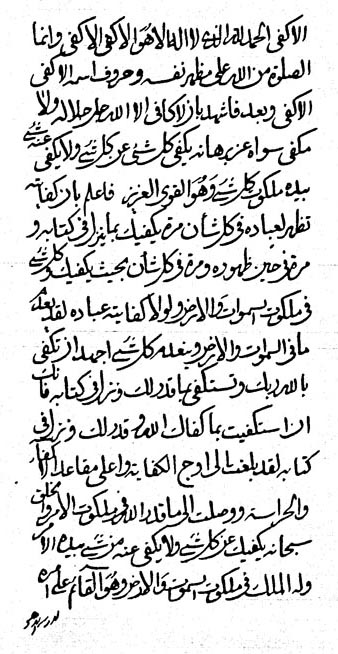 الاكفى الحمد لله الذي لا اله الا هو الاكفى الاكفى وانما
الصلوة من الله على مظهر نفسه وحروف اسمه الاكفى
الاكفى وبعد فاشهد بان لا كافى الا الله جل جلاله ولا
مكفى سواه عز برهانه يكفى كل شئ عن كل شئ ولا يكفى عنه شئ
بيده ملكوت كل شئ وهو القوى العزيز فاعلم بان كفايته
تظهر لعباده فى كل شأن مرة يكفيك بما ينزل فى كتابه و
مرة فى حين ظهوره ومرة فى كل شأن بحيث يكفيك كل شئ
فى ملكوت السموات والارض ولولا كفايته عباده لقد
ما فى السموات والارض وبنعله كل شئ اجهد ان تكفى
بالله ربك وتستكفى بما قدر لك ونزل فى كتابه فانك
ان استكفيت بما كفاك الله وقدر لك ونزل فى
كتابه لقد بلغت الى اوج الكفاية واعلى مقاعد
والحراسة ووصلت الى ما قدر الله فى ملكوت الامر والخلق
سبحانه يكفيك عن كل شئ ولا يكفى عنه من شئ بيده الامر
وله الملك فى ملكوت السموات والارض وهو القائم على امره